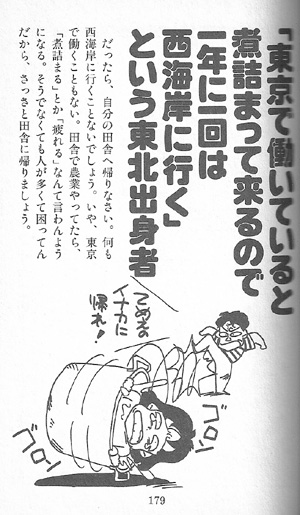 「東京で働いていると
煮詰まって来るので
一年に一回は
西海岸に行く」
という東北出身者
だったら、自分の田舎へ帰りなさい。何も
西海岸に行くことないでしょう。いや、東京
で働くこともない。田舎で農業やってたら、
「煮詰まる」とか「疲れる」なんて言わんよう
になる。そうでなくても人が多くて困ってん
だから、さっさと田舎に帰りましょう。
てめえの
イナカに
帰れ!
ゴロン
ゴロン
179